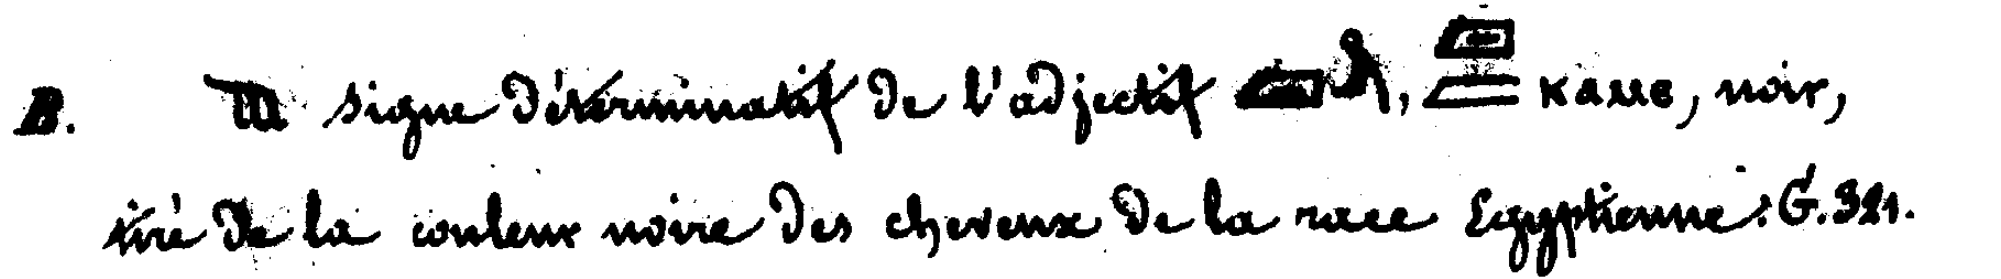 B. signe déterminatif de l'adjectif , ⲕⲁⲙⲉ, noir,
tiré de la couleur noire des cheveux de la race Egyptienne. G. 321.